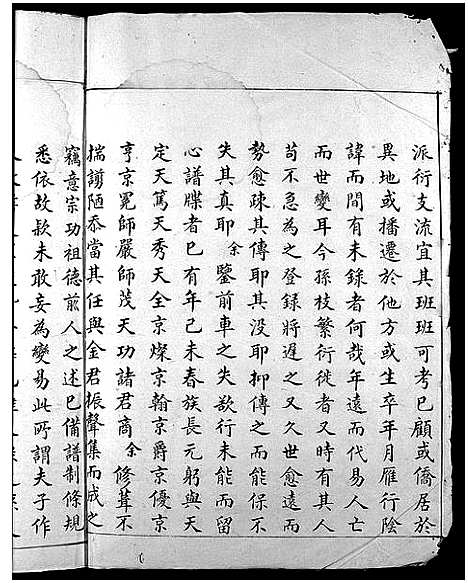 派衍支流宜其班班可考已顧或僑居於
異地或播遷於他方或生卒年月雁行陰
諱而間有未録者何哉年遠而代易人亡
而世變耳今孫枝繁衍徙者又時有其人
苟不急為之登録將遲之又久世愈遠而
勢愈疎其傳耶其没耶抑傳之而能保不
失其真耶余鑒前車之失欲行未能而留
心譜牒者已有年己未春族長元躬與天
定天篤天秀天全京燦京翰京爵京優京
亨京冕師嚴師茂天功諸君商余修葺不
揣譾陋忝當其任與金君振聲集而成之
竊意宗功祖德前人之述已備譜制條規
悉依故款未敢妄為變易此所謂夫子作